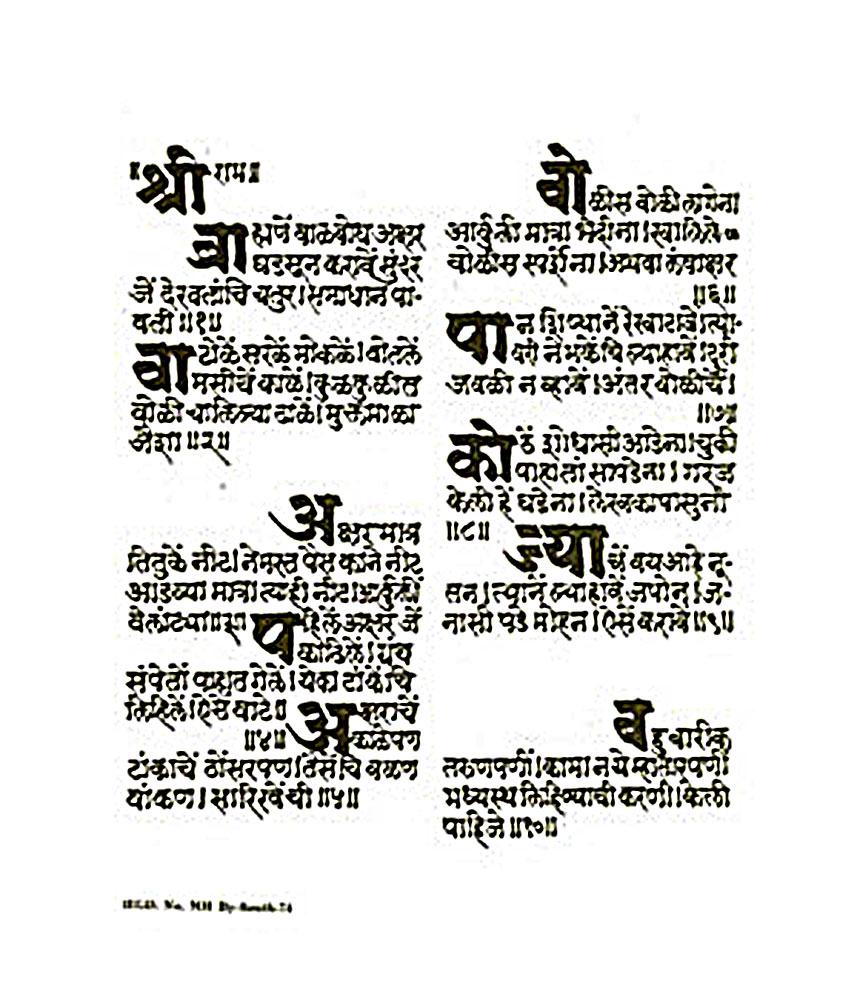 ॥श्री राम॥
ब्राह्मणें बाळबोध अक्षर
घडसून करावें सुंदर
जें देखतांचि चतुर।समाधान पा-
वती॥१॥
वाटोळें सरळें मोकळें।वोतलें
मसीचें काळें।कुळकुळीत
वोळी चालिल्या ढाळें।मुक्तमाळा
जैशा॥२॥
अक्षरमात्र
तितुकें नीट।नेमस्त पैस काने नीट
आडव्या मात्रा त्याही नीट।आर्कुलीं
वेलांट्या॥३॥ पहिलें अक्षर जें
काढिलें।ग्रंथ
संपेतों पाहात गेलें।येका टांकेंचि
लिहिलें।ऐसें वाटे॥
॥४॥ अक्षराचें
काळेपण
टांकाचें ठोंसरपण।तैसेंचि वळण
वांकण।सारिखेंची॥५॥
वोळीस वोळी लागेना
आर्कुली मात्रा भेदीना।खालिले
वोळीस स्पर्शेना।अथवा लंबाक्षर
॥६॥
पान शिष्यानें रेखाटावें।त्या-
वरी नेमकेंचि ल्याहावें।दुरी
जवळी न व्हावें।अंतर वोळीचें।
॥७॥
कोठें शोधासी आडेना।चुकी
पाहातां सापडेना।गरज
केली हें घडेना।लेखकापासुनी
॥८॥ ज्याचें वय आहे नू-
तन।त्यानें ल्याहावें जपोन।ज-
नासी पडे मोहन।ऐसें करावें॥९॥
बहु बारीक
तरुणपणीं।कामा नये म्हातारपणीं
मध्यस्थ लिहिण्याची करणी।केली
पाहिजे॥१०॥